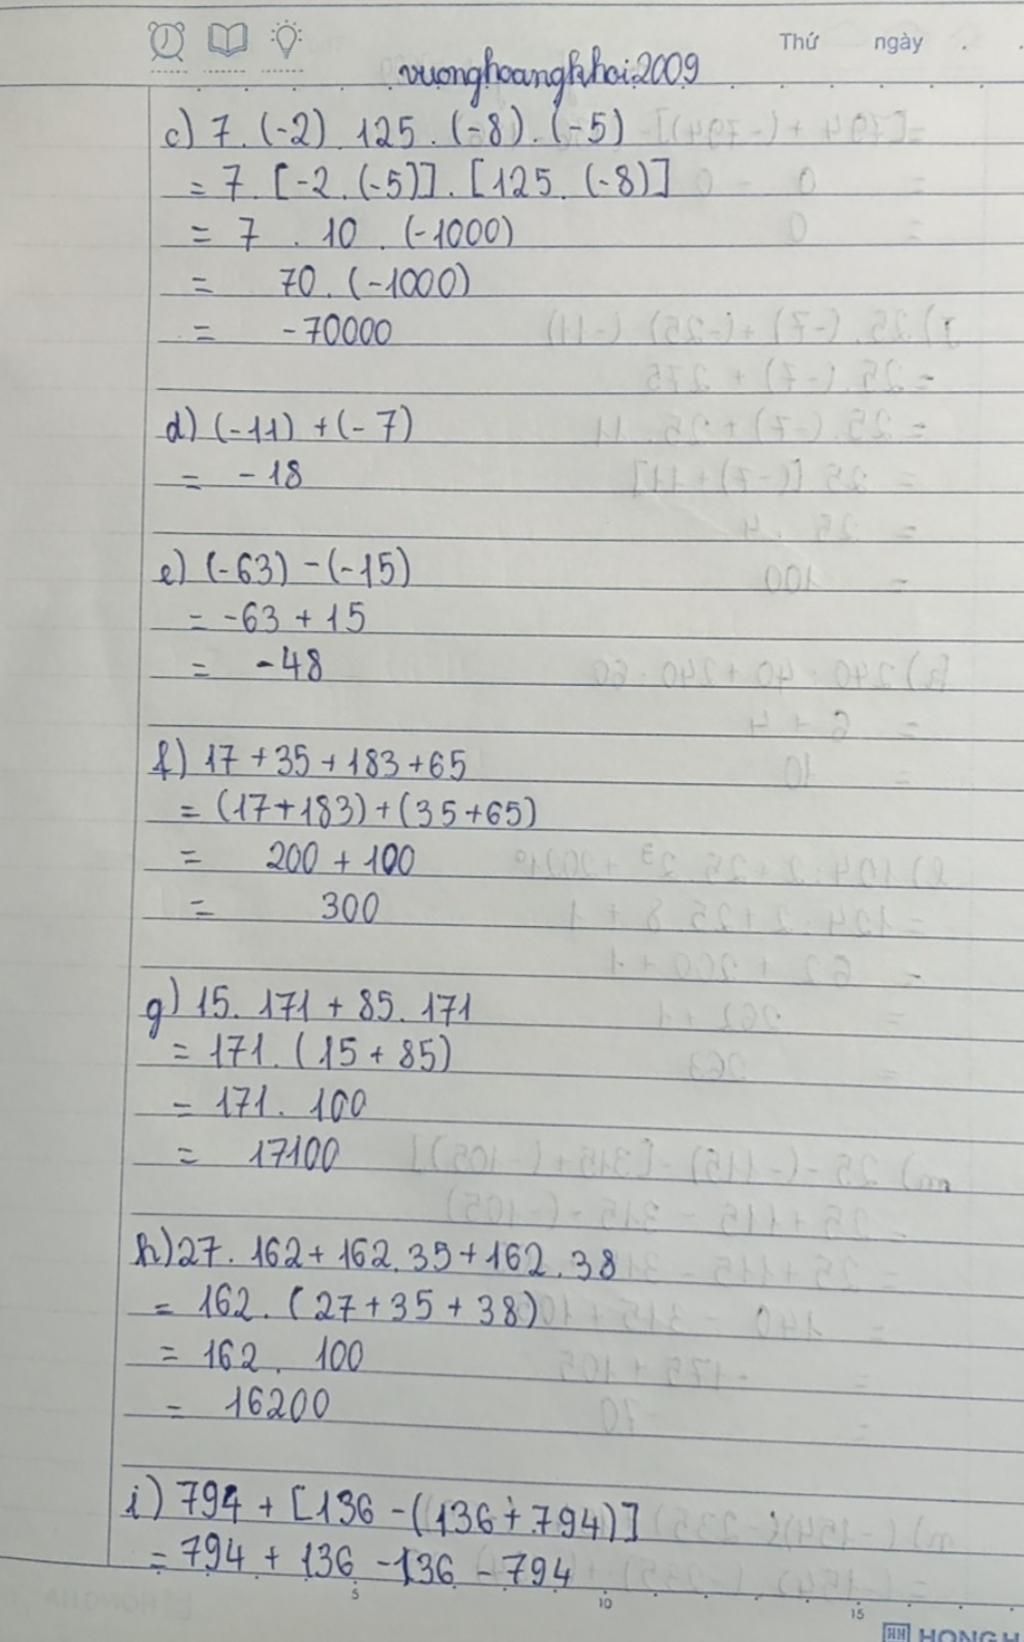 Thứ ngày
vuonghoangkhoi2009
c) 7 . (-2) . 125 . (-8) . (-5)
= 7 . [-2 . (-5)] . [125 . (-8)]
= 7 . 10 . (-1000)
= 70 . (-1000)
= -70000
d) (-11) + (-7)
= -18
e) (-63) - (-15)
= -63 + 15
= -48
f) 17 + 35 + 183 + 65
= (17 + 183) + (35 + 65)
= 200 + 100
= 300
g) 15 . 171 + 85 . 171
= 171 . (15 + 85)
= 171 . 100
= 17100
h) 27 . 162 + 162 . 35 + 162 . 38
= 162 . (27 + 35 + 38)
= 162 . 100
= 16200
i) 794 + [136 - (136 + 794)]
= 794 + 136 - 136 - 794
5 10 15
HH HONG H